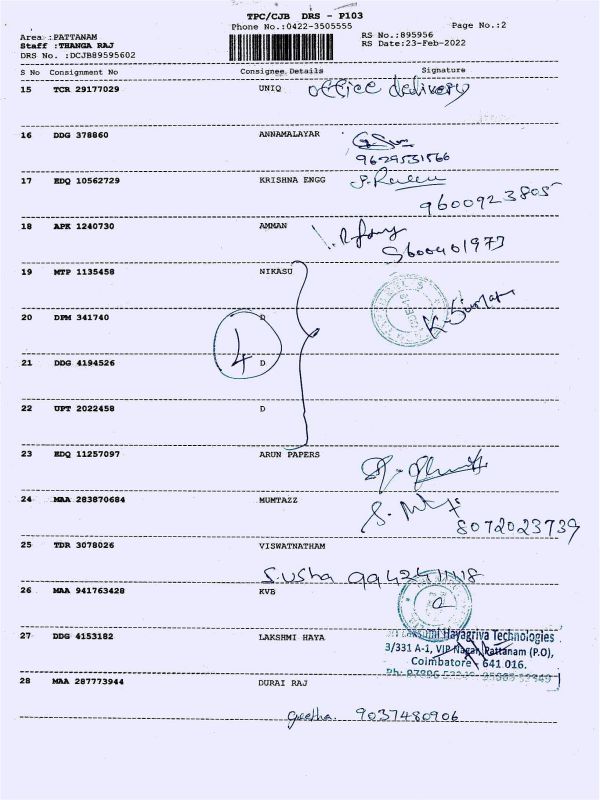 TPC/CJB DRS - P103
Phone No.:0422-3505555 Page No.:2
Area :PATTANAM RS No.:895956
Staff :THANGA RAJ RS Date:23-Feb-2022
DRS No. :DCJB89595602
S No Consignment No Consignee Details Signature
15 TCR 29177029 UNIQ office delivery
16 DDG 378860 ANNAMALAYAR
9629531566
17 EDQ 10562729 KRISHNA ENGG
9600923805
18 APK 1240730 AMMAN
9600401973
19 MTP 1135458 NIKASU
K-Sumar
20 DPM 341740 D
4
21 DDG 4194526 D
22 UPT 2022458 D
23 EDQ 11257097 ARUN PAPERS
24 MAA 283870684 MUMTAZZ
8072023739
25 TDR 3078026 VISWATNATHAM
S.usha
26 MAA 941763428 KVB
27 DDG 4153182 LAKSHMI HAYA
Sri Lakshmi Hayagriva Technologies
3/331 A-1, VIP Nagar, Pattanam (P.O),
Coimbatore - 641 016.
28 MAA 287773944 DURAI RAJ
geetha. 9037480906